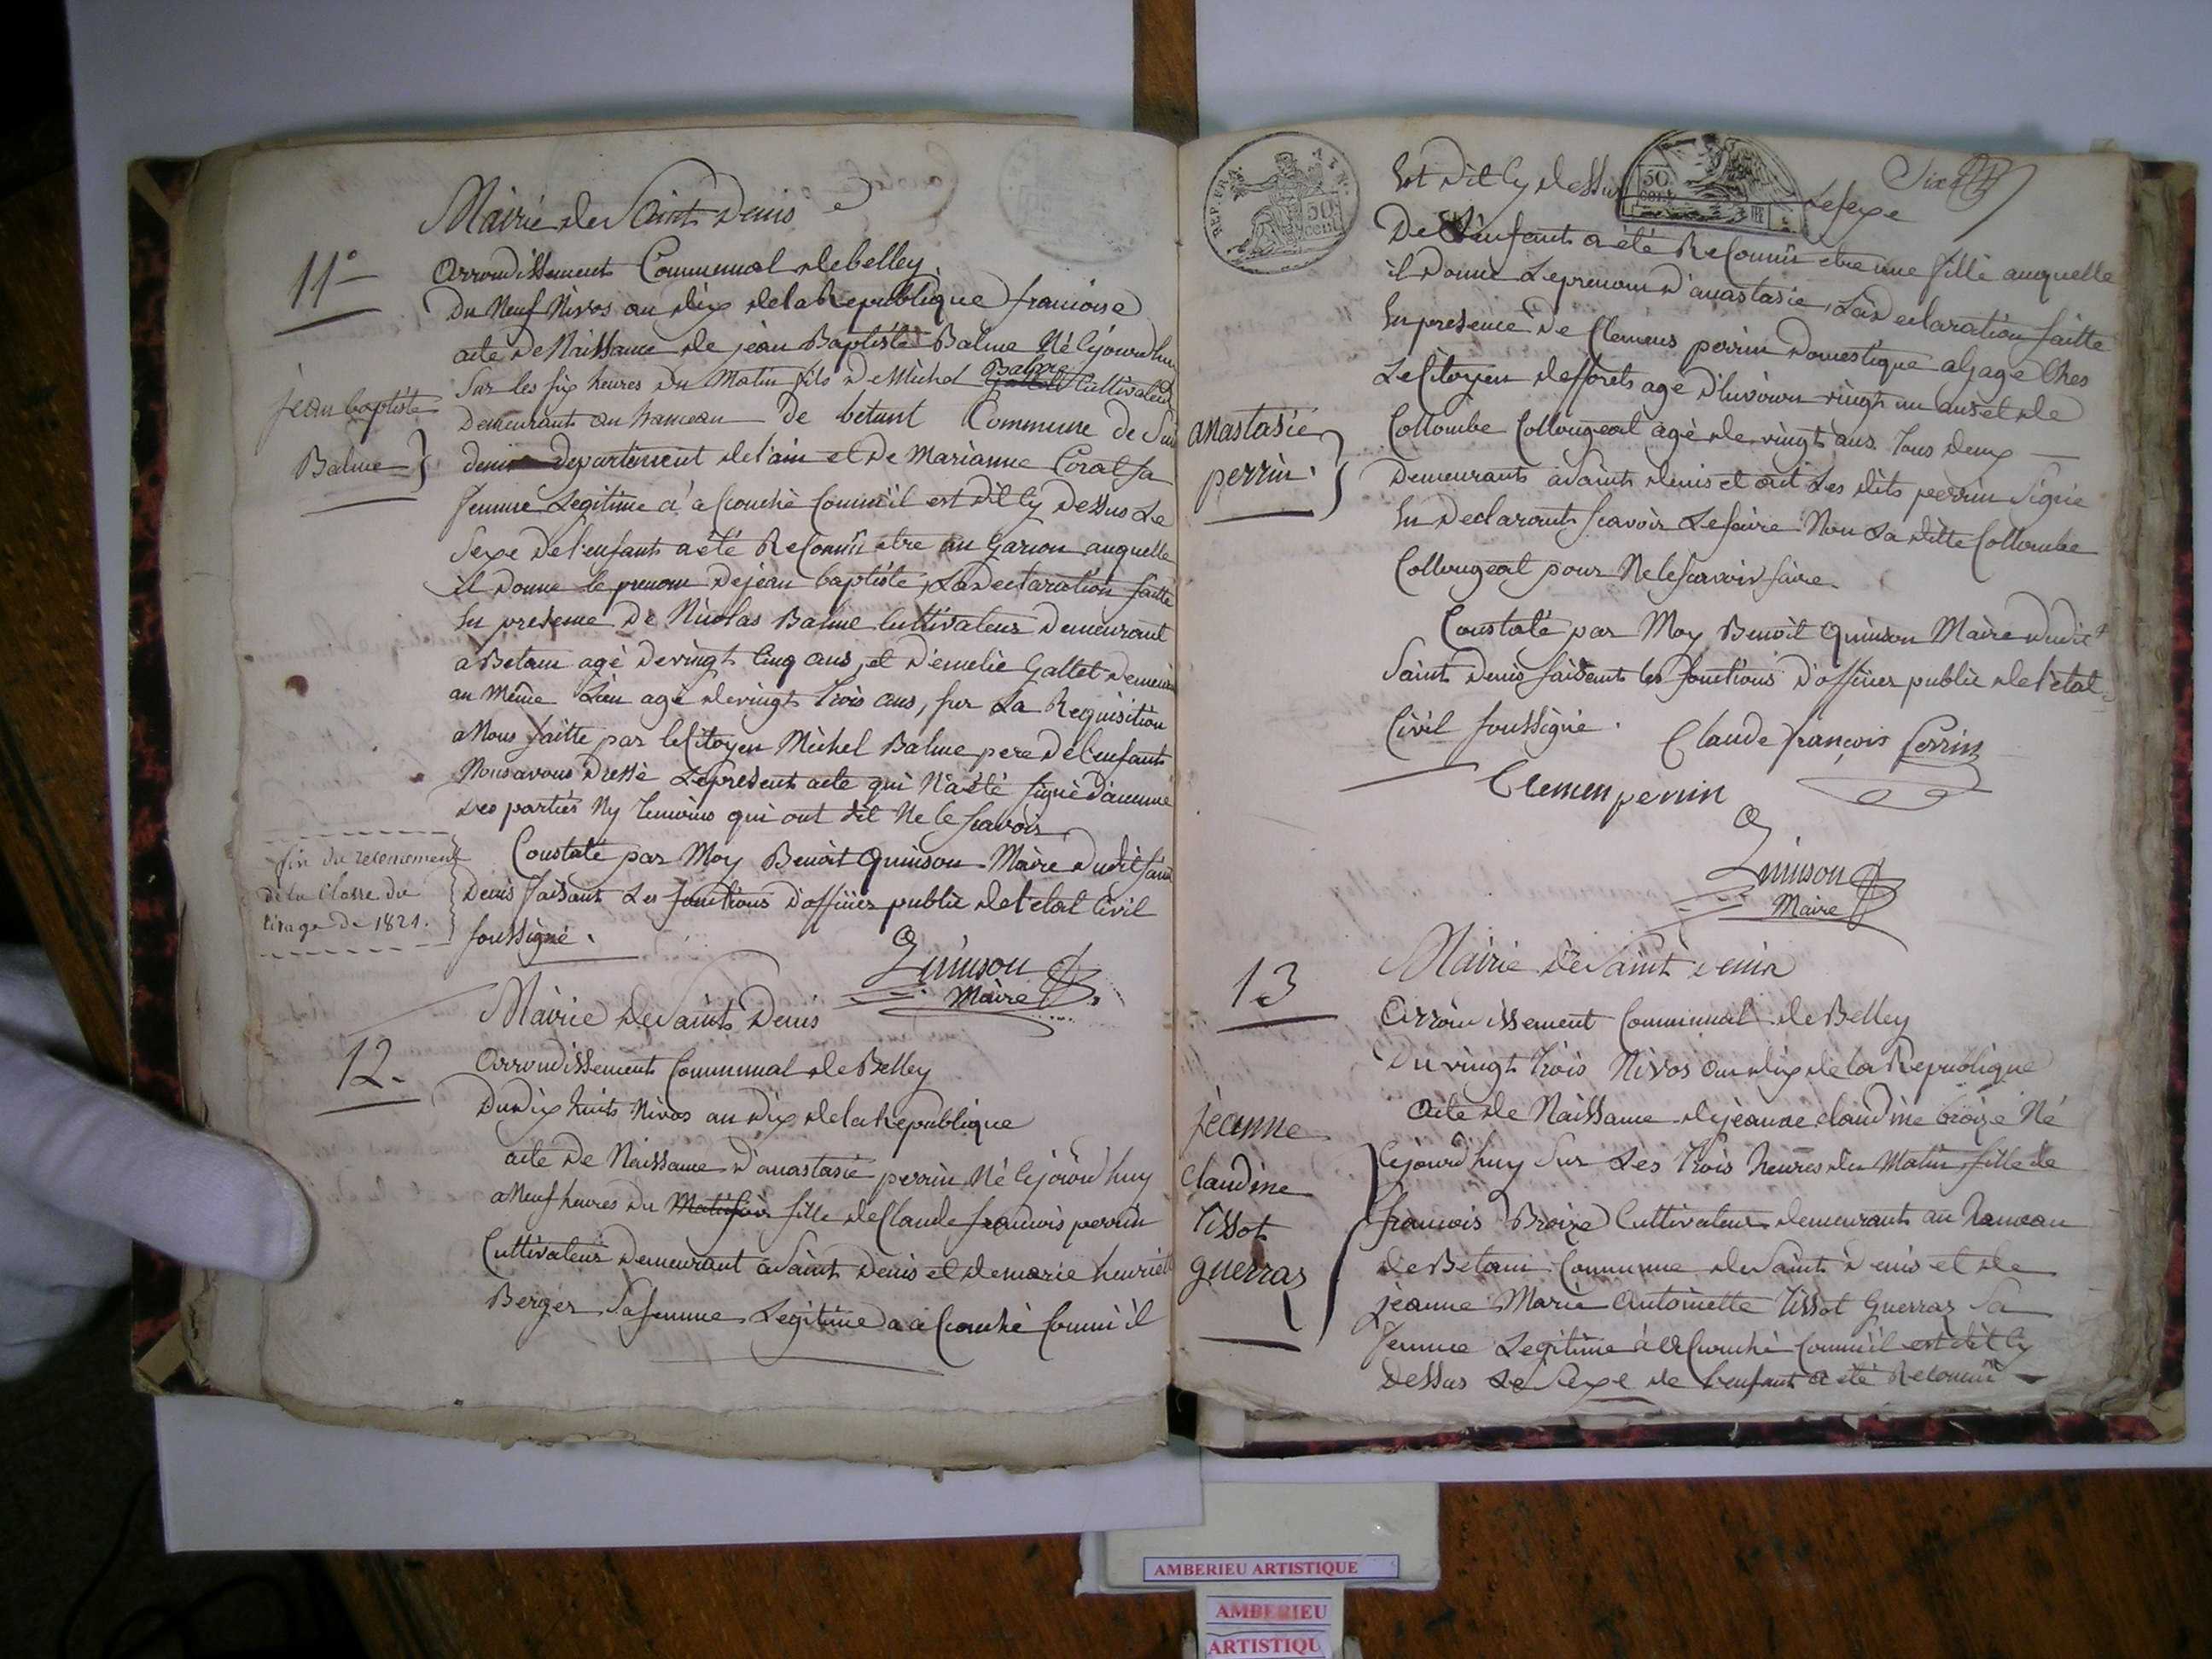 Mairie de Saint Denis
11e
arrondissement Communal de belley
Du Neuf Nivos an dix de la Republique francoise
acte de Naissance de jean Baptiste Balme Né Cejourdhuy
Sur les six heures du Matin fils de Michel Balme Cultivateur
jean baptiste
Balme
Demeurant au hameau de betant Commune de St
denis departement de l'ain et de Marianne Coral sa
femme Legitime a acouché Comm'il est dit Cy dessus Le
Sexe de l'enfant a été Reconnu etre un Garcon auquelle
il donne le prenom de jean baptiste, La declaration faitte
En presence de Nicolas Balme Cultivateur demeurant
a Betant agé de vingt Cinq ans, et d'emelie Gallet demeurant
au même Lieu agé de vingt trois ans, sur La Requisition
a Nous faitte par le Citoyen Michel Balme pere de l'enfant
Nous avons dressé Le present acte qui N'a été signé d'aucune
des parties Ny temoins qui ont dit Ne le scavoir
fin du recensement
de la Classe du
tirage de 1821.
Constaté par Moy Benoit Quinson Maire dudit Saint
Denis faisant Les fonctions d'officier public de l'etat Civil
soussigné.
Quinson
Maire
Mairie de Saint Denis
12.
arrondissement Communal de Belley
Du dix huit Nivos an dix de la Republique
acte de Naissance d'anastasie perrin Né Cejourd'huy
a Neuf heures du fille de Claude francois perrin
Cultivateur demeurant a Saint Denis et de marie henriette
Berger Sa femme Legitime a acouché Comm'il
Six
REP. FRA.
50 cent
50 cent
Est dit Cy dessus Le sexe
De L'enfant a été Reconnu etre une fille auquelle
il donne Le prenom d'anastasie, La declaration faitte
En presence de Clemens perrin domestique a gage Ches
Le Citoyen agé d'huviron vingt un ans et de
anastasie
perrin
Collombe Collougeat agé de vingt ans. Tous deux
Demeurants a Saint denis et ont Les dits perrin Signé
En declarant scavoir Le faire Non La ditte Collombe
Collougeat pour Ne le scavoir faire
Constaté par Moy Benoit Quinson Maire dudit
Saint Denis faisant les fonctions d'officier public de l'etat
Civil soussigné.
Claude françois Perrin
Clemen perrin
Quinson
Maire
Mairie de Saint denis
13
arrondissement Communal de Belley
Du vingt trois Nivos an dix de la Republique
acte de Naissance de jeanne claudine broize Né
Cejourd'huy Sur Les trois heures du Matin fille de
jeanne
Claudine
tissot
guerraz
francois Broize Cultivateur demeurant au hameau
de Betant Commune de Saint denis et de
jeanne Marie Antoinette tissot Guerraz Sa
femme Legitime a acouché Comm'il est dit Cy
dessus Le Sexe de L'enfant a été Reconnu
AMBERIEU ARTISTIQUE
AMBERIEU
ARTISTIQU